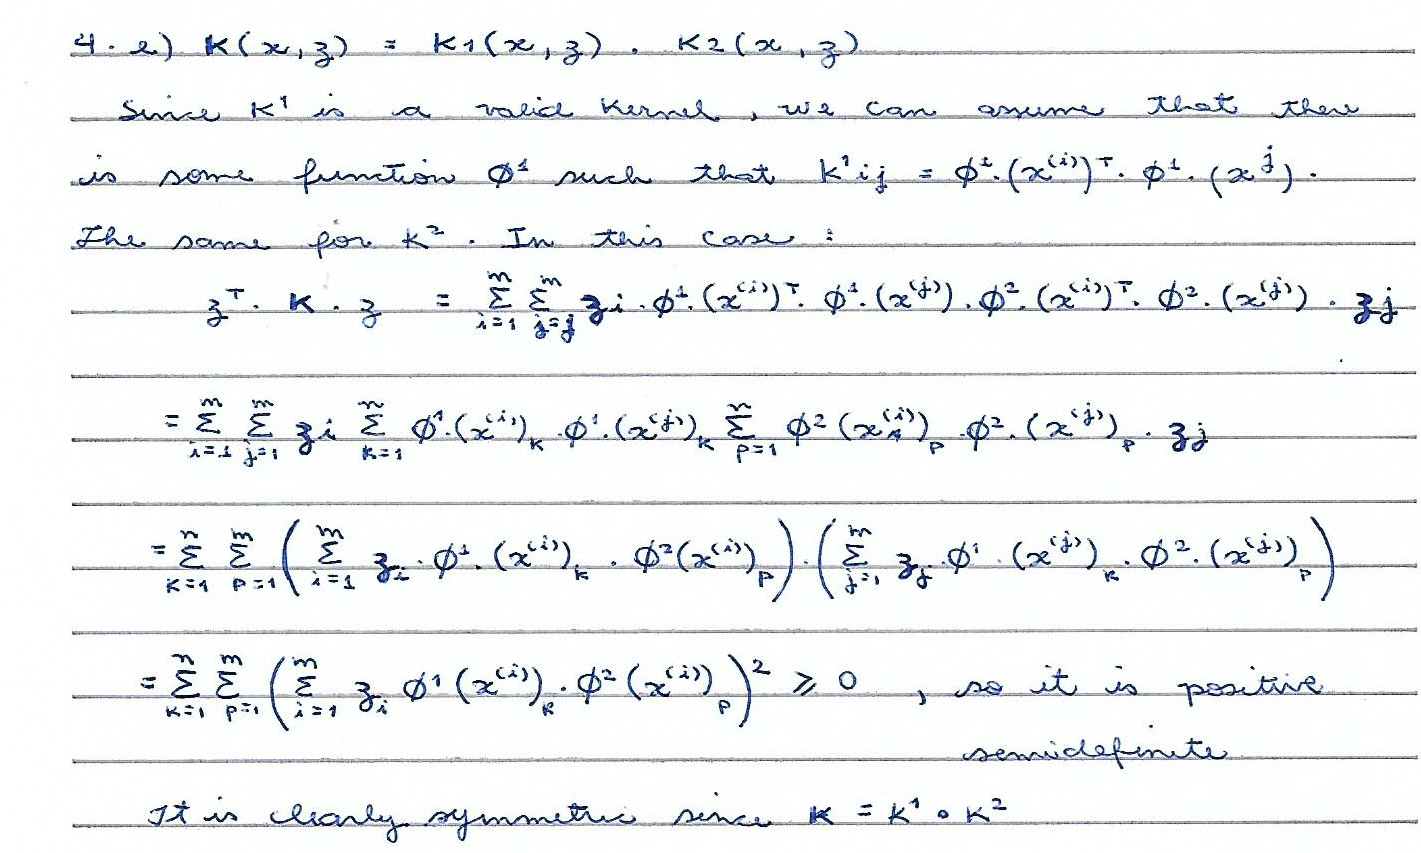 4. e) K(x, z) = K1(x, z) . K2(x, z)
Since K¹ is a valid kernel, we can assume that there
is some function ϕ¹ such that K¹ij = ϕ¹.(x⁽ⁱ⁾)ᵀ. ϕ¹. (x ʲ).
The same for K². In this case :
zᵀ. K . z = ∑_{i=1}^{m} ∑_{j=j}^{m} zi . ϕ¹.(x⁽ⁱ⁾)ᵀ. ϕ¹.(x⁽ʲ⁾) . ϕ².(x⁽ⁱ⁾)ᵀ. ϕ².(x⁽ʲ⁾) . zj
= ∑_{i=1}^{m} ∑_{j=1}^{m} zi ∑_{K=1}^{n} ϕ¹.(x⁽ⁱ⁾)_K . ϕ¹.(x⁽ʲ⁾)_K ∑_{p=1}^{n} ϕ²(x⁽ⁱ⁾)_p . ϕ².(x⁽ʲ⁾)_p . zj
= ∑_{K=1}^{n} ∑_{p=1}^{m} ( ∑_{i=1}^{m} z_i . ϕ¹.(x⁽ⁱ⁾)_K . ϕ²(x⁽ⁱ⁾)_p ) . ( ∑_{j=1}^{m} z_j . ϕ¹.(x⁽ʲ⁾)_K . ϕ².(x⁽ʲ⁾)_p )
= ∑_{K=1}^{n} ∑_{p=1}^{m} ( ∑_{i=1}^{m} z_i ϕ¹(x⁽ⁱ⁾)_K . ϕ²(x⁽ⁱ⁾)_p )² ⩾ 0 , so it is positive
semidefinite
It is clearly symmetric since K = K¹ ∘ K²